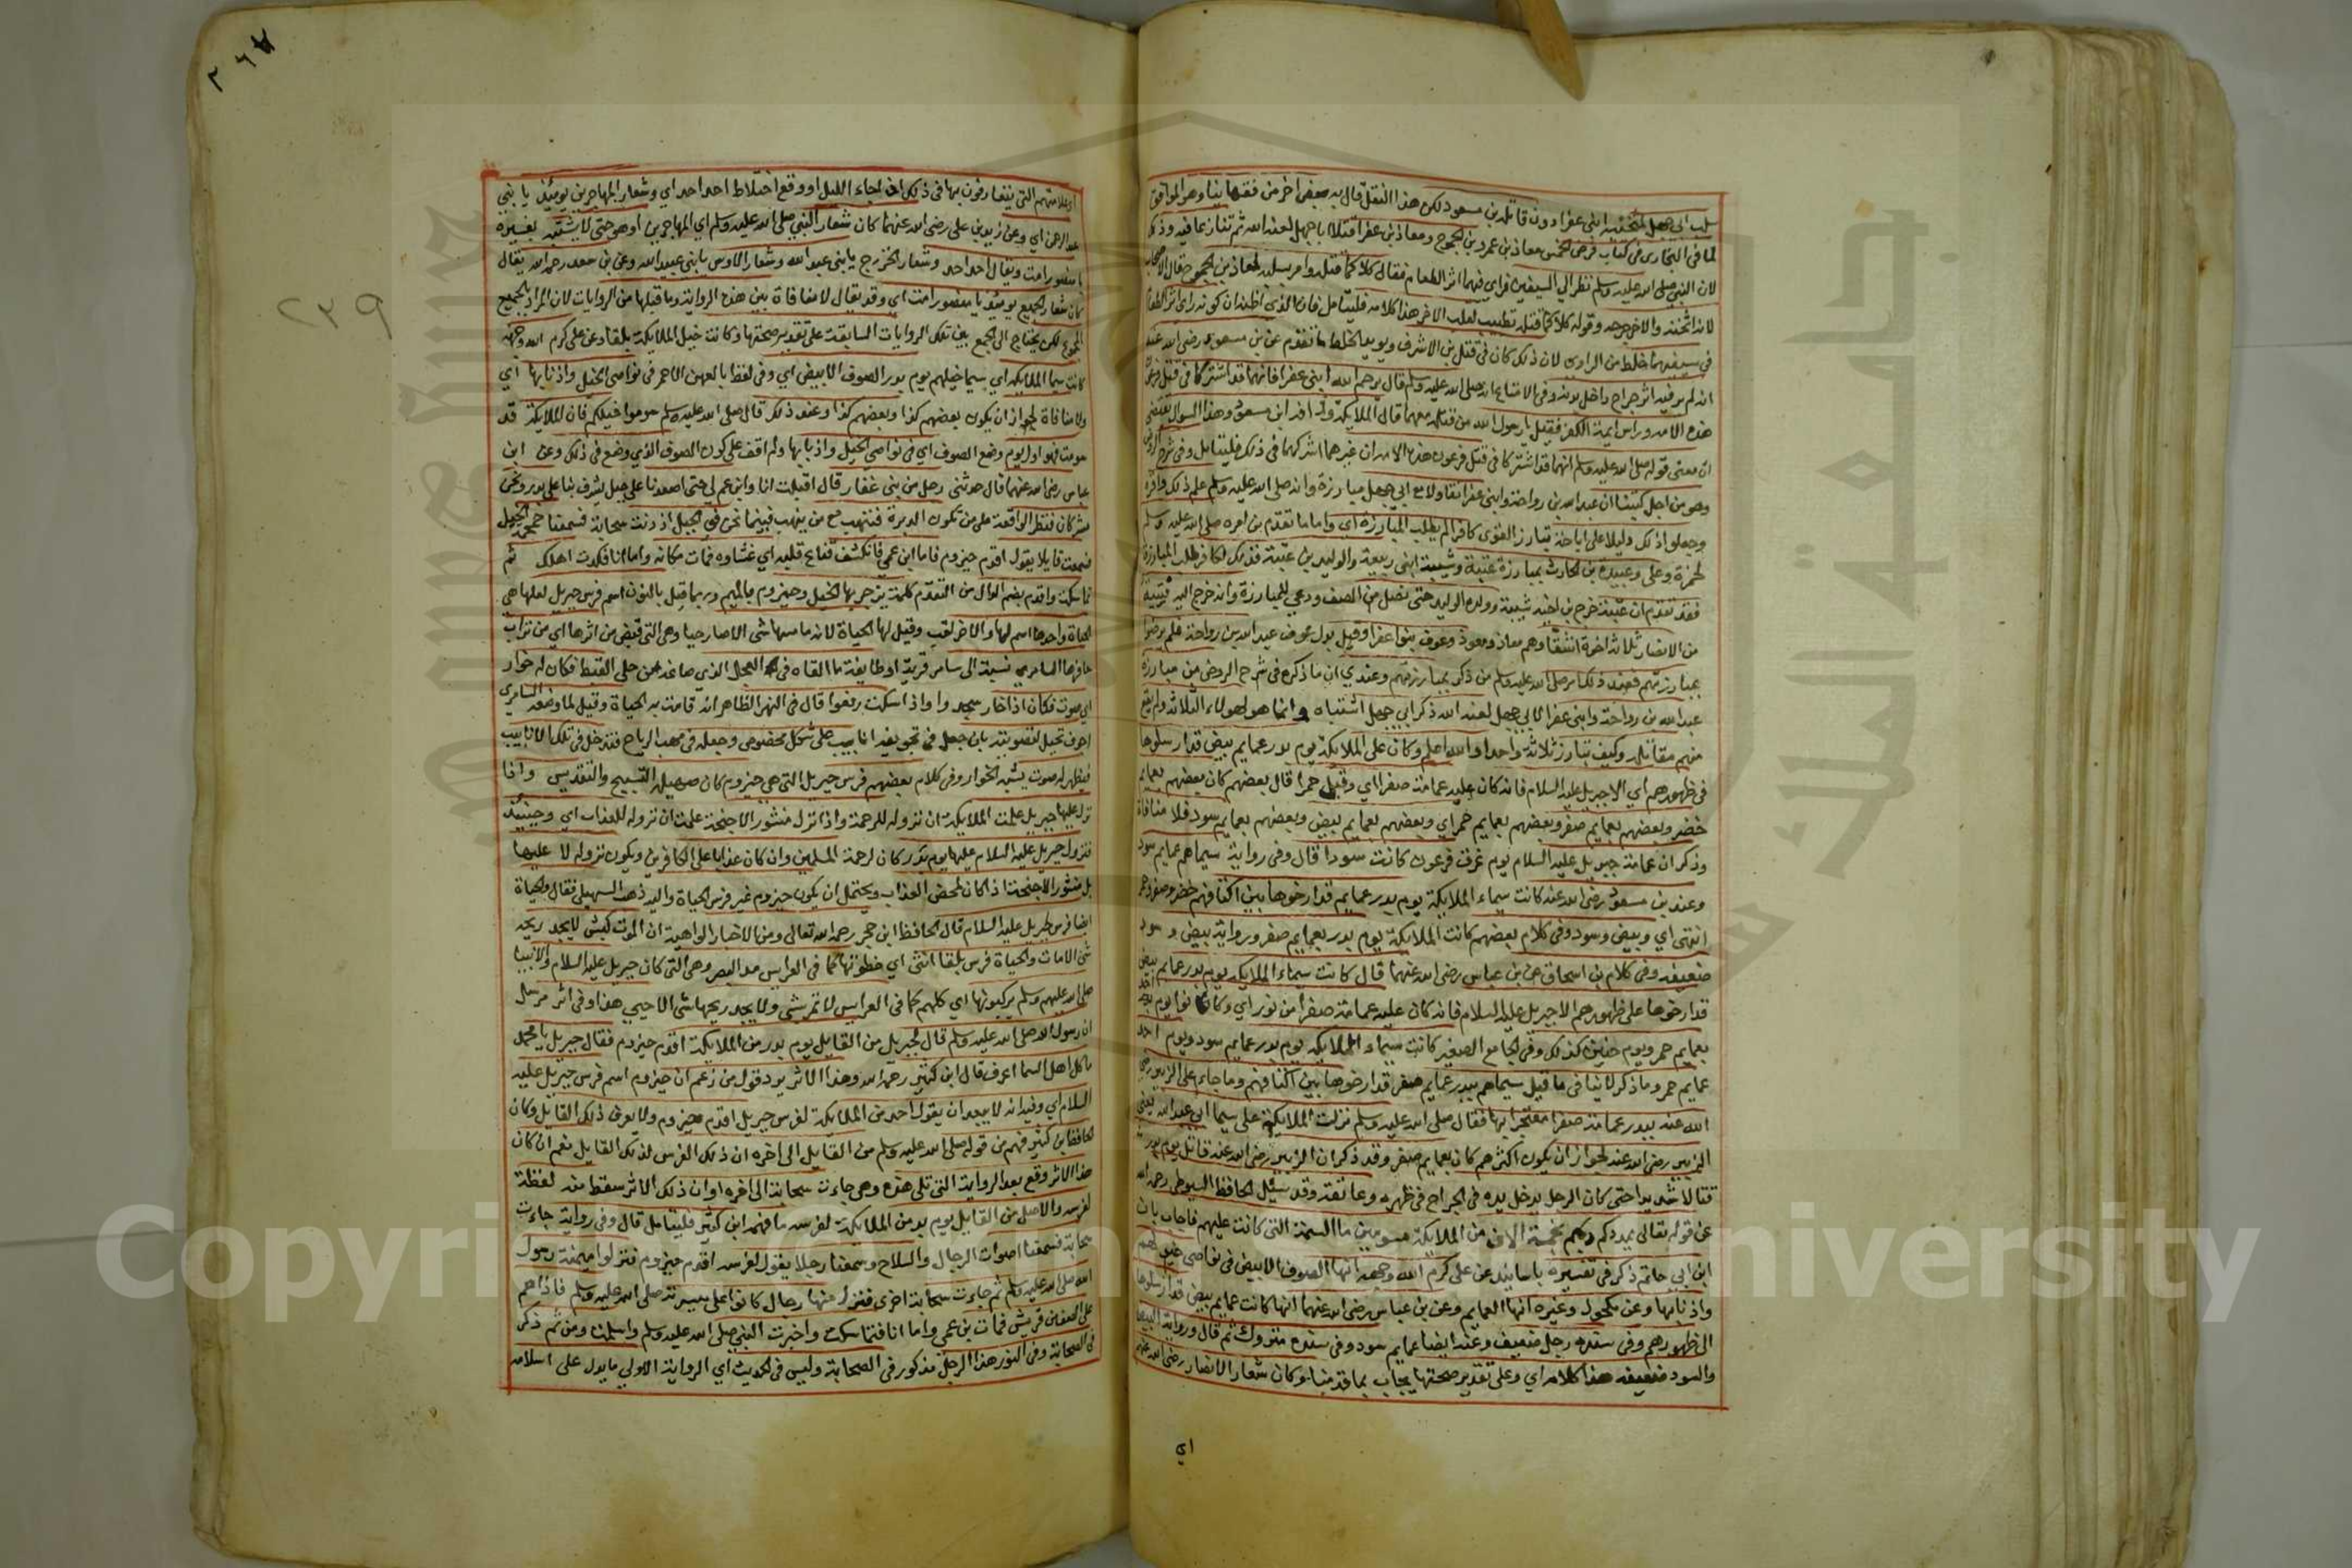 سلب ابي جهل لمثخنيه ابني عفرا دون قاتله بن مسعود لكن هذا النقل قال به بعض اخر من فقهاينا وهو الموافق
لما في البخاري في كتاب فرض الخمس معاذ بن عمرو بن الجموح ومعاذ بن عفرا قتلا ابا جهل لعنه الله ثم تنازعا فيه وذكر
لان النبي صلى الله عليه وسلم نظر الي السيفين فراي فيهما اثر الطعام فقال كلاكما قتله وامر بسلبه لمعاذ بن الجموح فقال الاصحاب
لانه اثخنه والاخر جرحه وقوله كلاكما قتله تطييب لقلب الاخر هذا كلامه فليتامل فان الذي اظنه ان كونه راى اثر الطعام
في سيفيهما خلط من الراوي لان ذلك كان في قتل بن الاشرف ويويد الخلط ما تقدم عن بن مسعود رضي الله عنه
انه لم ير فيه اثر جراح داخل بدنه وفي الامتاع انه صلى الله عليه وسلم قال يرحم الله ابني عفرا فانهما قد اشتركا في قتل فرعون
هذه الامه وراس ايمة الكفر فقيل يا رسول الله من قتله معهما قال الملايكة وذافه ابن مسعود وهذا السوال يقتضي
ان معنى قوله صلى الله عليه وسلم انهما قد اشتركا في قتل فرعون هذه الامه ان غيرهما اشركهما في ذلك فليتامل وفي شرح الروض
وهو من اجل كتبنا ان عبد الله بن رواحة وابني عفرا تقاولا مع ابي جهل مبارزة وانه صلى الله عليه وسلم علم ذلك واقره
وجعلوا ذلك دليلا على اباحة تبارز القوي كافرا لم يطلب المبارزة اي واما ما تقدم من امره صلى الله عليه وسلم
لحمزة وعلي وعبيدة بن الحارث بمبارزة عتبة وشيبة ابني ربيعة والوليد بن عتبة فذلك لكافر طلب المبارزة
فقد تقدم ان عتبة خرج بن اخيه شيبة وولده الوليد حتى نصل من الصف ودعي للمبارزة وانه خرج اليه فتية
من الانصار ثلاثة اخوة اشقا وهم معاذ ومعوذ وعوف بنوا عفرا وقيل بدل عوف عبد الله بن رواحة فلم يرضوا
بمبارزتهم فعند ذلك امر صلى الله عليه وسلم من ذكر بمبارزتهم وعندي ان ما ذكره في شرح الروض من مبارزة
عبد الله بن رواحة وابني عفرا لابي جهل لعنه الله ذكر ابي جهل اشتباه وانما هو لهولاء الثلاثه ولم يقع
منهم مقاتله وكيف تبارز ثلاثة واحدا والله اعلم وكان على الملايكة يوم بدر عمايم بيض قد ارسلوها
في ظهورهم اي الا جبريل عليه السلام فانه كان عليه عمامة صفرا اي وقيل حمرا قال بعضهم كان بعضهم بعمايم
خضر وبعضهم بعمايم صفر وبعضهم بعمايم حمر اي وبعضهم بعمايم بيض وبعضهم بعمايم سود فلا منافاة
وذكر ان عمامة جبريل عليه السلام يوم غرق فرعون كانت سودا قال وفي رواية سيماهم عمايم سود
وعند بن مسعود رضي الله عنه كانت سيماء الملايكة يوم بدر عمايم قد ارخوها بين اكتافهم خضر وصفر وحمر
انتهى اي وبيض وسود وفي كلام بعضهم كانت الملايكة يوم بدر بعمايم صفر ورواية بيض وسود
ضعيفه وفي كلام بن اسحاق عن بن عباس رضي الله عنهما قال كانت سيماء الملايكه يوم بدر عمايم بيض
قد ارخوها على ظهورهم الا جبريل عليه السلام فانه كان عليه عمامة صفرا من نور اي وكانوا يوم احد
بعمايم حمر ويوم حنين كذلك وفي الجامع الصغير كانت سيماء الملايكة يوم بدر عمايم سود ويوم احد
عمايم حمر وما ذكر لا ينافي ما قيل سيماهم ببدر عمايم صفر قد ارخوها بين اكتافهم وما جاء على الزبير رضي
الله عنه ببدر عمامة صفرا معتجرا بها فقال صلى الله عليه وسلم نزلت الملايكة على سيما ابي عبد الله يعني
الزبير رضي الله عنه لجواز ان يكون اكثرهم كان بعمايم صفر وقد ذكر ان الزبير رضي الله عنه قاتل يوم بدر
قتالا شديدا حتى كان الرجل يدخل يده في الجراح في ظهره وعاتقه وقد سئل الحافظ السيوطي رحمه الله
عن قوله تعالى يمددكم ربكم بخمسة الاف من الملايكة مسومين ما السمة التي كانت عليهم فاجاب بان
ابن ابي حاتم ذكر في تفسيره باسانيد عن علي كرم الله وجهه انها الصوف الابيض في نواصي خيولهم
واذنابها وعن مكحول وغيره انها العمايم وعن بن عباس رضي الله عنهما انها كانت عمايم بيض قد ارسلوها
الى ظهورهم وفي سنده رجل ضعيف وعنه ايضا عمايم سود وفي سنده متروك ثم قال ورواية البيض
والسود ضعيفه هذا كلامه اي وعلى تقدير صحتها يجاب بما قدمنا وكان شعار الانصار رضي الله عنهم
اي
٢٦٧
٢٣٩
اي علامتهم التي يتعارفون بها في ذلك اذا جاء الليل او وقع اختلاط احد احد اي وشعار المهاجرين يومئذ يا بني
عبد الرحمن اي وعن زيد بن علي رضي الله عنهما كان شعار النبي صلى الله عليه وسلم اي المهاجرين او هو حتى لا يشتبه بغيره
يا منصور امت ويقال احد احد وشعار الخزرج يا بني عبد الله وشعار الاوس يا بني عبيد الله وعن بن سعد رحمه الله يقال
كان شعار الجميع يومئذ يا منصور امت اي وقد يقال لا منافاة بين هذه الرواية وما قبلها من الروايات لان المراد بالجميع
المجموع لكن يحتاج الى الجمع بين تلك الروايات السابقة على تقدير صحتها وكانت خيل الملايكة بلقا وعن علي كرم الله وجهه
كانت سيما الملايكه اي سيما خيلهم يوم بدر الصوف الابيض اي وفي لفظ بالعهن الاحمر في نواصي الخيل واذنابها اي
ولا منافاة لجواز ان يكون بعضهم كذا وبعضهم كذا وعند ذلك قال صلى الله عليه وسلم سوموا خيلكم فان الملايكة قد
سومت فهو اول يوم وضع الصوف اي في نواصي الخيل واذنابها ولم اقف على كون الصوف الذي وضع في ذلك وعن ابن
عباس رضي الله عنهما قال حدثني رجل من بني غفار قال اقبلت انا وابن عم لي حتى اصعدنا على جبل يشرف بنا على بدر ونحن
مشركان ننظر الواقعة على من تكون الدبرة فننتهب مع من ينهب فبينما نحن في الجبل اذ دنت سحابة فسمعنا حمحمة الخيل
فسمعت قايلا يقول اقدم حيزوم فاما ابن عمي فانكشف قناع قلبه اي غشاوه فمات مكانه واما انا فكدت اهلك ثم
تماسكت واقدم بضم الدال من التقدم كلمة يزجر بها الخيل وحيزوم بالميم وربما قيل بالنون اسم فرس جبريل لعلها هي
الحياة واحدها اسم لها والاخر لقب وقيل لها الحياة لانه ما مسها شى الا صار حيا وهي التي قبض من اثرها اي من تراب
حافرها السامري نسبة الى سامر قرية او طايفة ما القاه في العجل الذي صاغه من حلي القبط فكان له خوار
اي صوت فكان اذا خار سجدوا واذا اسكت رفعوا قال في النهر الظاهر انه قامت به الحياة وقيل لما وضعه السامري
اجوف تحيل لتصويته بان جعل في تجويفه انابيب على شكل مخصوص وجعله في مهب الرياح فتدخل في تلك الانابيب
فيظهر له صوت يشبه الخوار وفي كلام بعضهم فرس جبريل التي هي حيزوم كان صهيله التسبيح والتقديس واذا
نزل عليها جبريل علمت الملايكة ان نزوله للرحمة واذا نزل منشور الاجنحة علمت ان نزوله للعذاب اي وحينئذ
فنزول جبريل عليه السلام عليها يوم بدر كان لرحمة المسلمين وان كان عذابا على الكافرين ويكون نزوله لا عليها
بل منشور الاجنحة اذا كان لمحض العذاب ويحتمل ان يكون حيزوم غير فرس الحياة واليه ذهب السهيلي فقال والحياة
ايضا فرس جبريل عليه السلام قال الحافظ ابن حجر رحمه الله تعالى ومن الاخبار الواهية ان الموت كبش لا يجد ريحه
شى الا مات والحياة فرس بلقا انثى اي خطوتها كما في العرايس مد البصر وهي التي كان جبريل عليه السلام والانبيا
صلى الله عليهم وسلم يركبونها اي كلهم كما في العرايس لا تمر بشي ولا يجد ريحها شى الا حيي هذا وفي اثر مرسل
ان رسول الله صلى الله عليه وسلم قال لجبريل من القايل يوم بدر من الملايكة اقدم حيزوم فقال جبريل يا محمد
ما كل اهل السما اعرف قال ابن كثير رحمه الله وهذا الاثر يرد قول من زعم ان حيزوم اسم فرس جبريل عليه
السلام اي وفيه انه لا يبعد ان يقول احد من الملايكة لفرس جبريل اقدم حيزوم ولا يعرف ذلك القايل وكان
الحافظ بن كثير فهم من قوله صلى الله عليه وسلم من القايل الى اخره ان ذلك الفرس لذلك القايل نعم ان كان
هذا الاثر وقع بعد الرواية التي تلي هذه وهي جاءت سحابة الى اخره او ان ذلك الاثر سقط منه لفظة
لفرسه والاصل من القايل يوم بدر من الملايكة لفرسه ما فهمه ابن كثير فليتامل قال وفي رواية جاءت
سحابة فسمعنا اصوات الرجال والسلاح وسمعنا رجلا يقول لفرسه اقدم حيزوم فنزلوا ميمنة رسول
الله صلى الله عليه وسلم ثم جاءت سحابة اخرى فنزل منها رجال كانوا على ميسرته صلى الله عليه وسلم فاذا هم
على الضعف من قريش فمات بن عمي واما انا فتماسكت واخبرت النبي صلى الله عليه وسلم واسلمنا ومن ثم ذكر
في الصحابة وفي النور هذا الرجل مذكور في الصحابة وليس في الحديث اي الرواية الاولي ما يدل على اسلامه
Copyright © King Saud University
جامعة الملك سعود